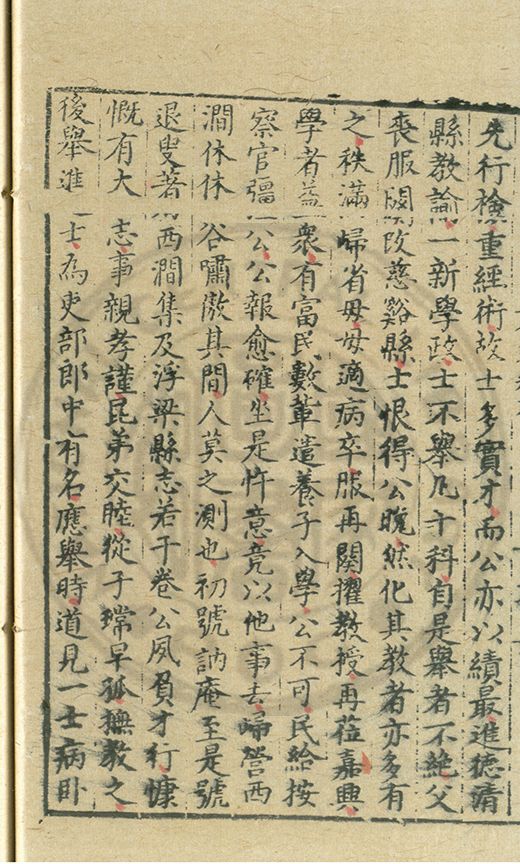 先行檢重經術故士多實才而公亦以績最進德清
縣教諭一新學政士不舉凡十科自是舉者不絕父
喪服闋改慈谿縣士恨得公晚然化其教者亦多有
之秩滿歸省母母適病卒服再闋擢教授再蒞嘉興
學者益衆有富民數輩遣養子入學公不可民給按
察官彊公公報愈確坐是忤意竟以他事去歸營西
澗休休谷嘯傲其間人莫之測也初號訥庵至是號
退叟著西澗集及浮梁縣志若干卷公夙負才行慷
慨有大志事親孝謹昆弟交睦從子瑺早孤撫教之
後舉進士為吏部郎中有名應舉時道見一士病卧